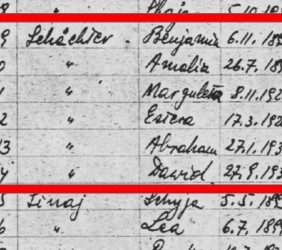 " 5.10.19
9 Schächter. Benjamin 6.11.189
0 " Amalia 26.7.189
1 " Marguleta 8.11.192
2 " Estera 17.3.192
3 " Abraham 27.1.193
4 " Dawid 27.9.193
5 Sinaj Schyja 5.5.189
6 " Lea 6.7.189